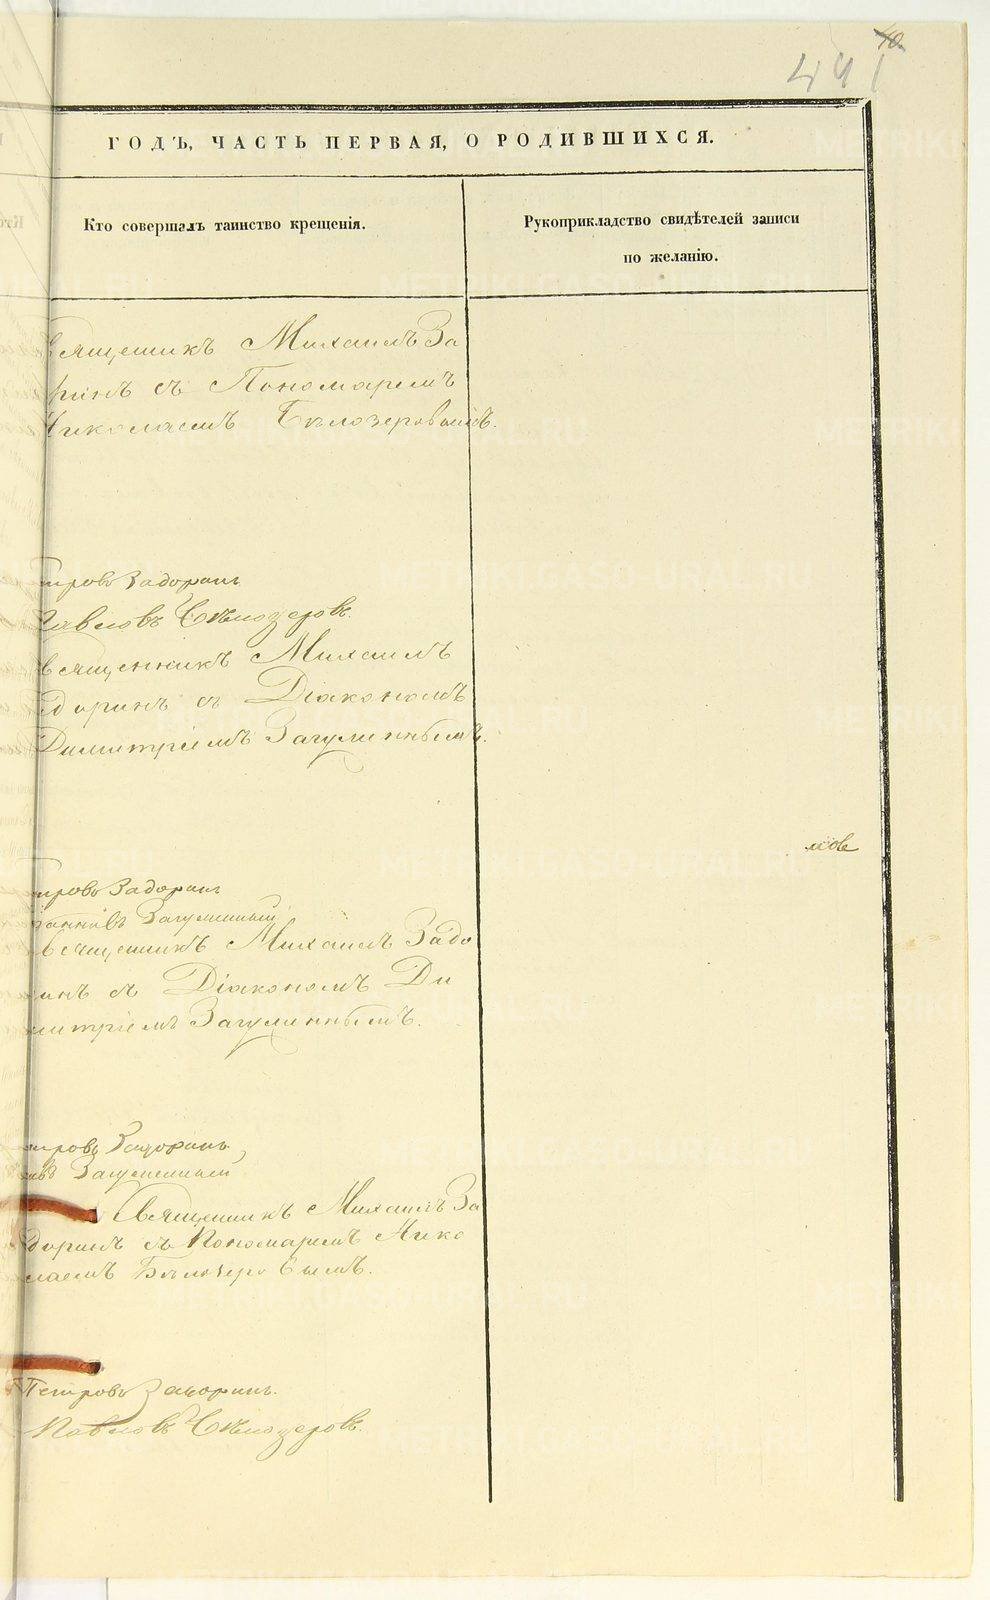 40.
441
ГОДЪ, ЧАСТЬ ПЕРВАЯ, О РОДИВШИХСЯ.
Кто совершалъ таинство крещенія.
Рукоприкладство свидѣтелей записи
по желанію.
вященикъ Михаилъ За
ринъ съ Пономаремъ
Николаемъ Бѣлозеровымъ.
тровъ Задоринъ
Павловъ Бѣлозеровъ.
вященникъ Михаилъ
доринъ съ Діакономъ
Димитріемъ Загуминнымъ.
мов
тровъ Задоринъ
Загуминный
вященникъ Михаилъ Задо
инъ съ Діакономъ Ди
митріемъ Загуминнымъ.
тровъ Задоринъ,
Загуменный
Священикъ Михаилъ За
доринъ съ Пономаремъ Нико
лаемъ Бѣлозеровымъ.
Петровъ Задоринъ.
Павловъ Бѣлозеровъ.
METRIKI.GASO-URAL.RU